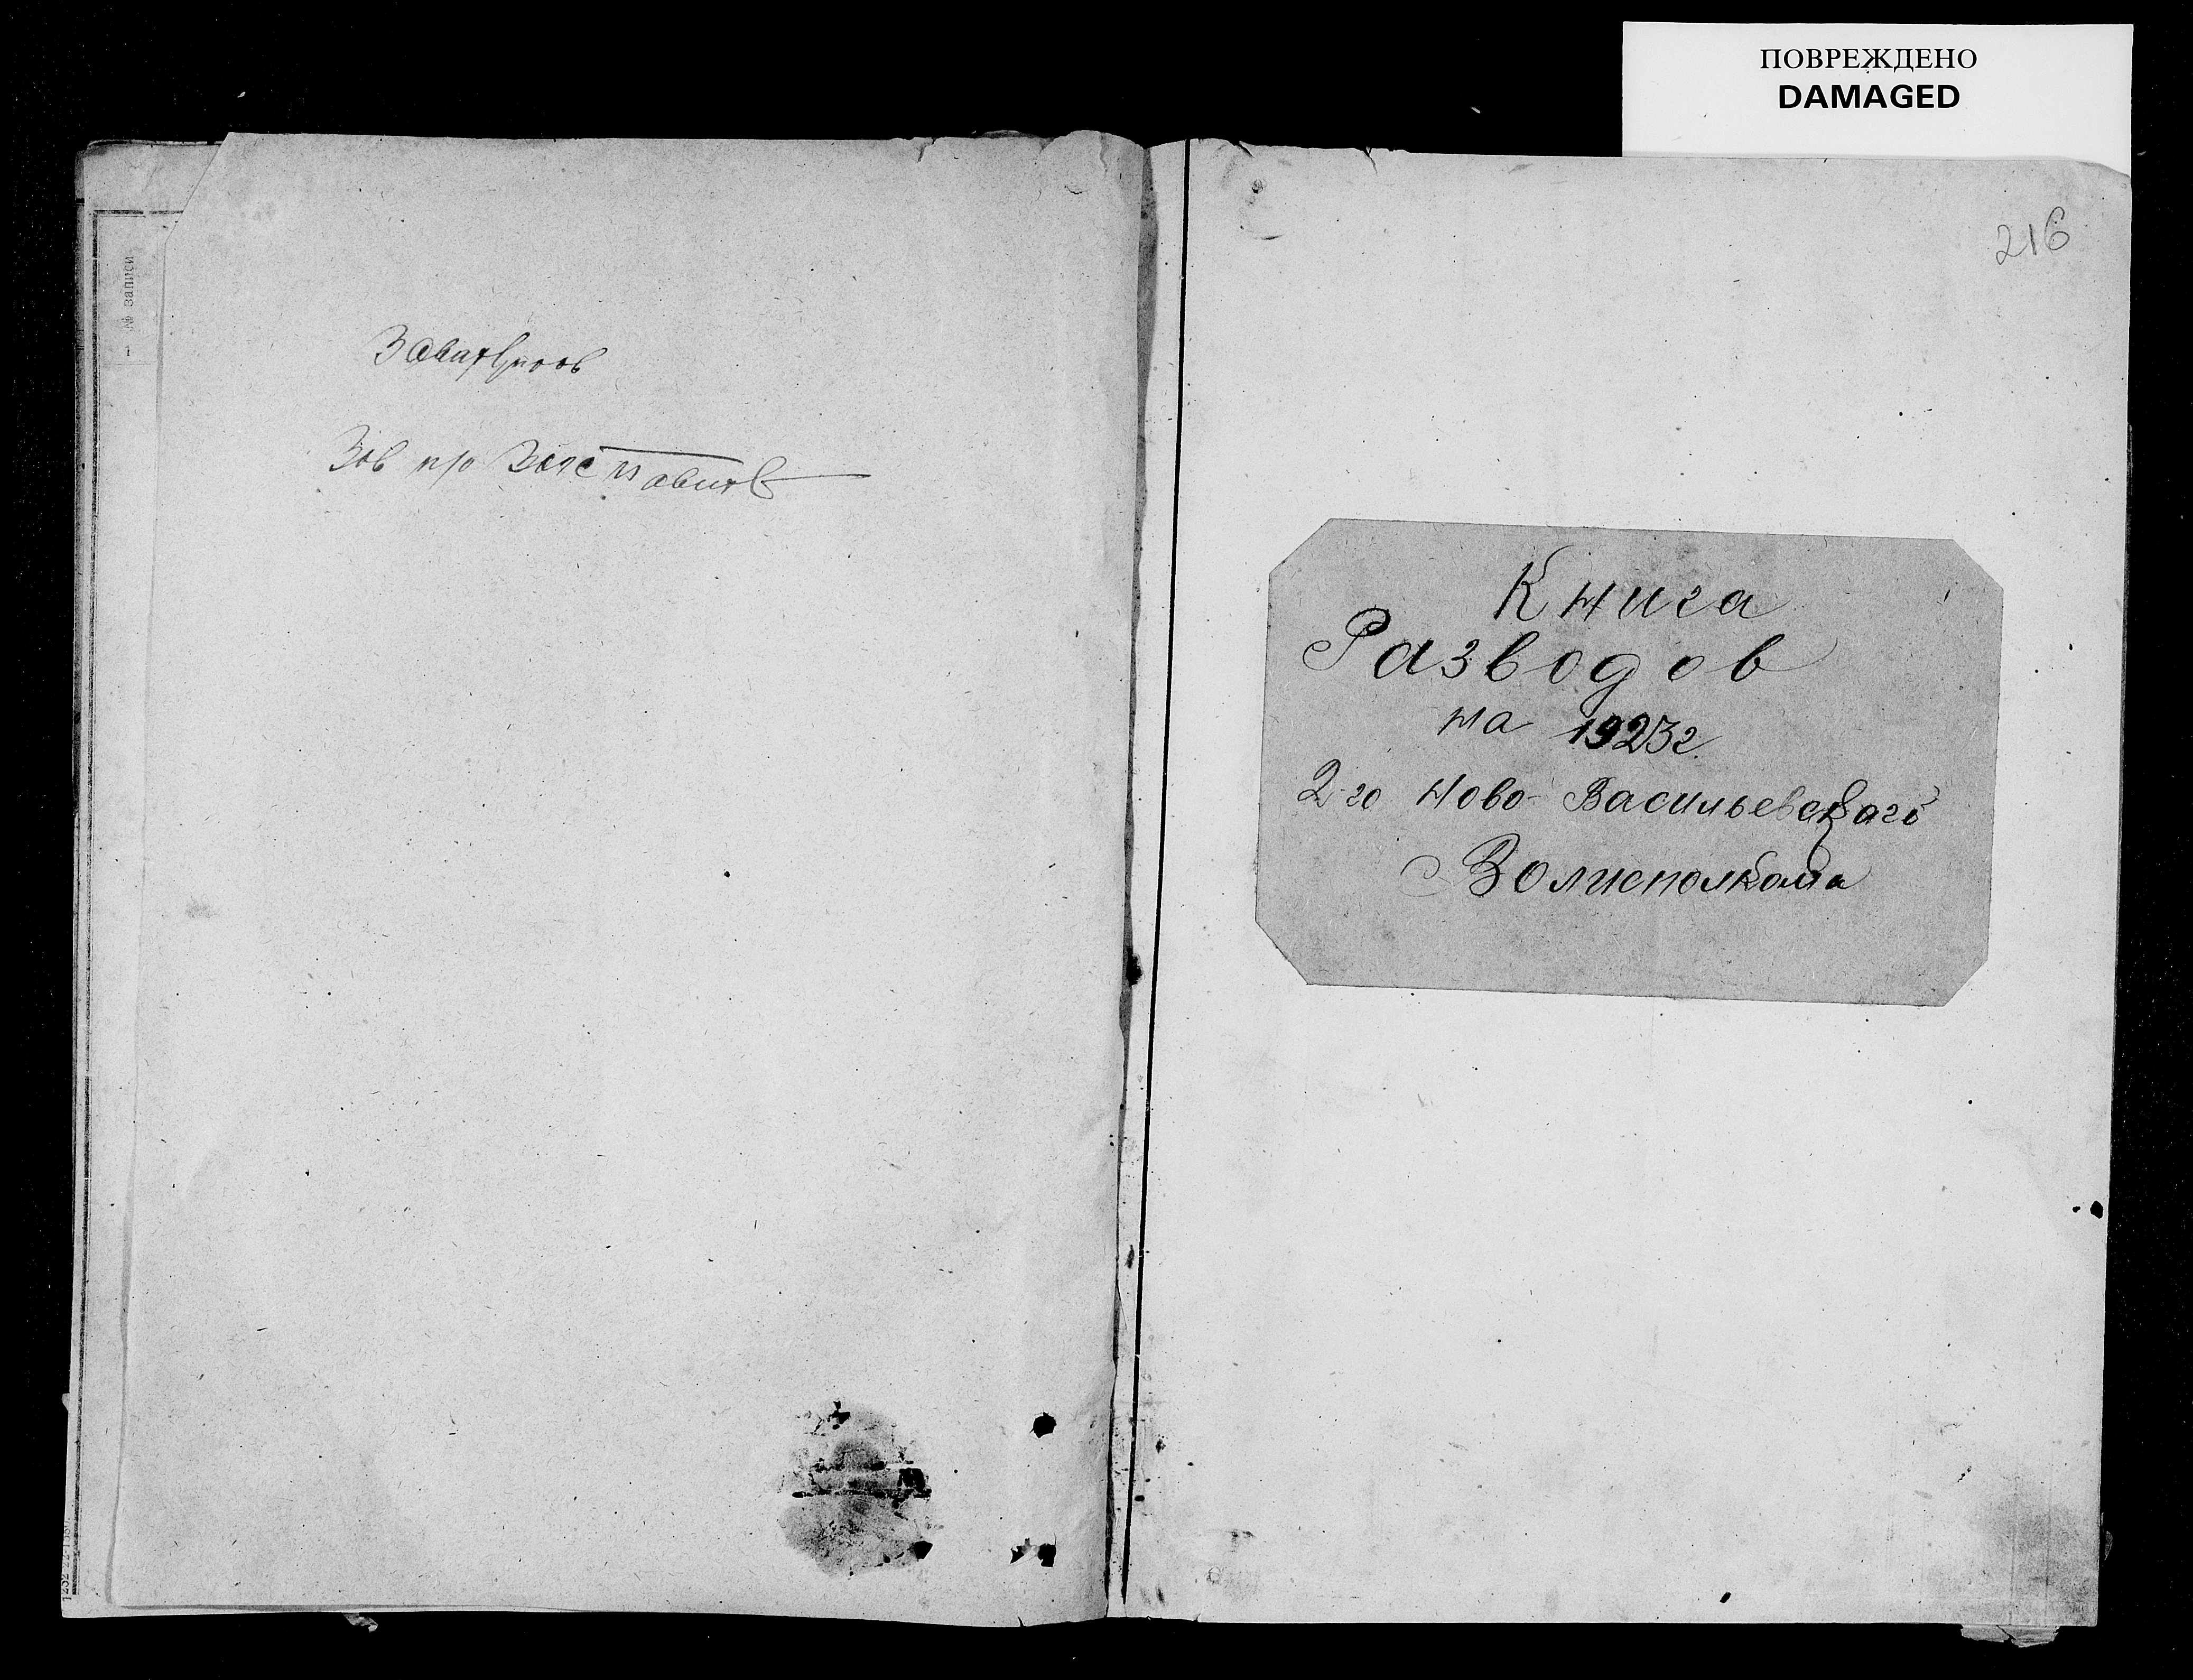 ПОВРЕЖДЕНО
DAMAGED
№ записи
216
Книга
Разводов
на 1923г.
2-го Ново-Васильевскаго
Волисполкома